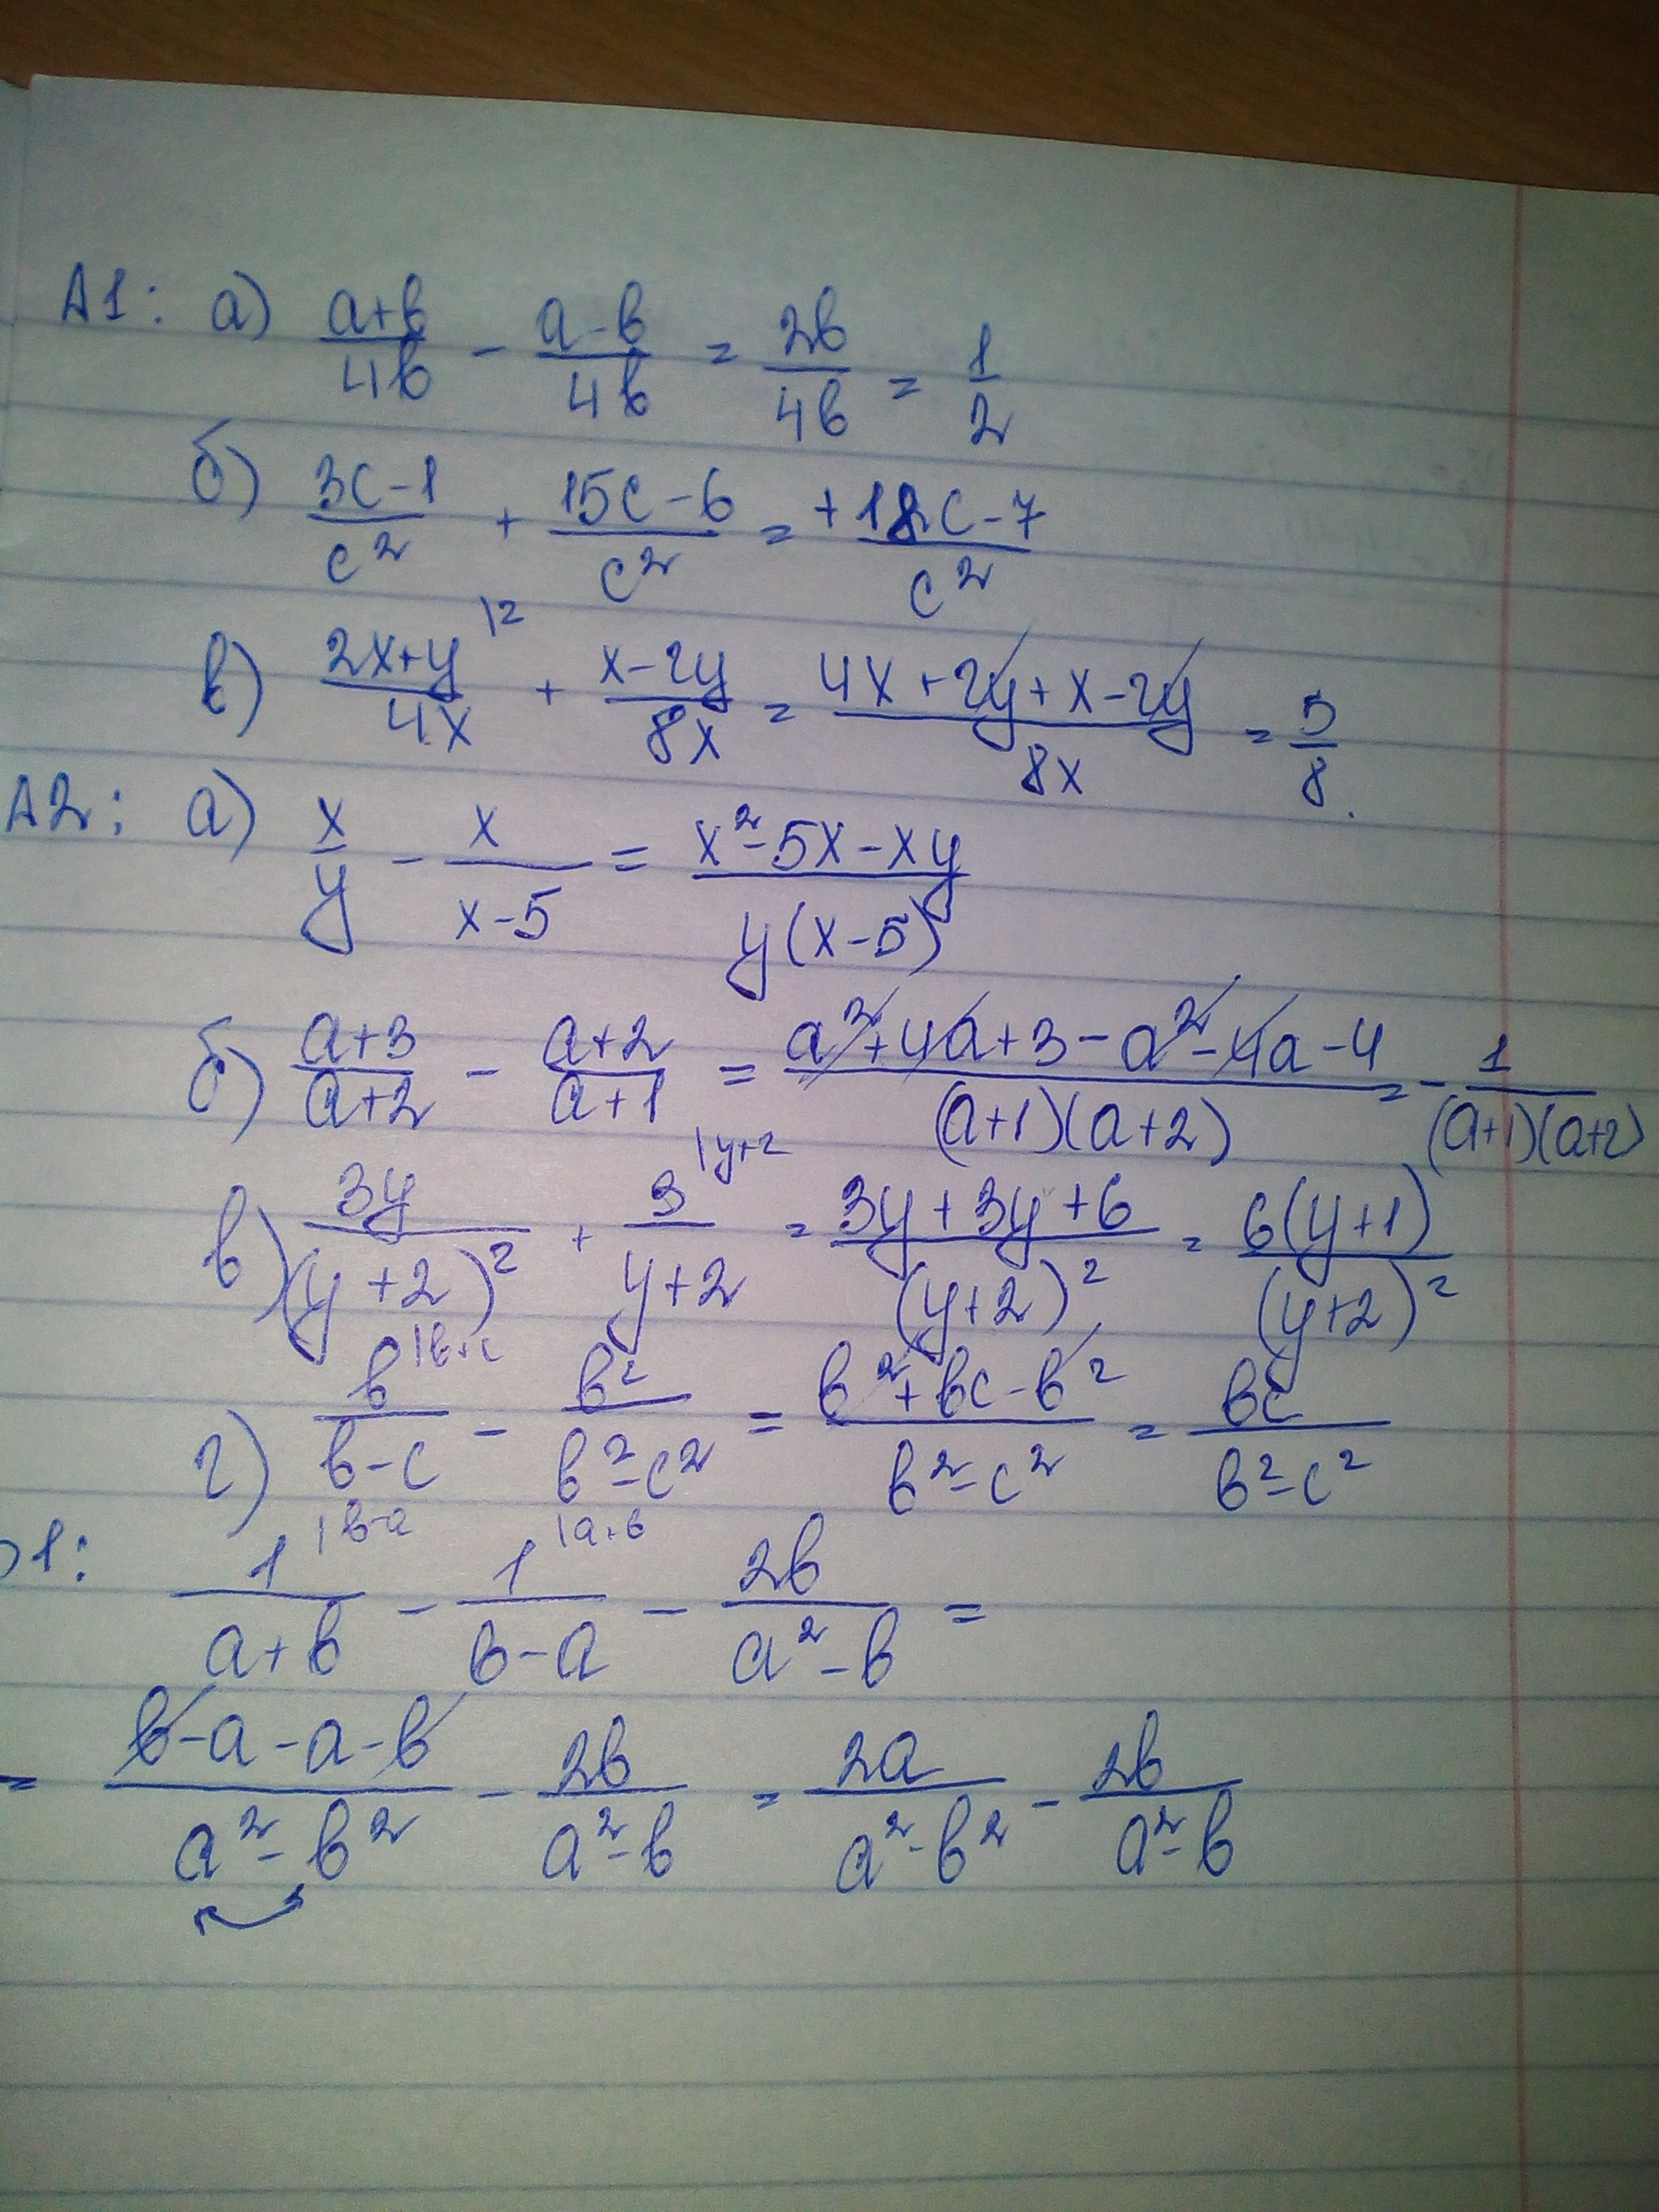 A1: а) (a+b)/(4b) - (a-b)/(4b) = 2b/4b = 1/2
б) (3c-1)/c² + (15c-6)/c² = + (18c-7)/c²
в) (2x+y)/(4x) |2 + (x-2y)/(8x) = (4x+2y+x-2y)/(8x) = 5/8.
A2: а) x/y - x/(x-5) = (x²-5x-xy)/(y(x-5))
б) (a+3)/(a+2) - (a+2)/(a+1) = (a²+4a+3-a²-4a-4)/((a+1)(a+2)) = - 1/((a+1)(a+2))
в) 3y/(y+2)² + 3/(y+2) |y+2 = (3y+3y+6)/(y+2)² = 6(y+1)/(y+2)²
г) b/(b-c) |b+c - b²/(b²-c²) = (b²+bc-b²)/(b²-c²) = bc/(b²-c²)
1: 1/(a+b) |b-a - 1/(b-a) |a+b - 2b/(a²-b) =
= (b-a-a-b)/(a²-b²) - 2b/(a²-b) = 2a/(a²-b²) - 2b/(a²-b)